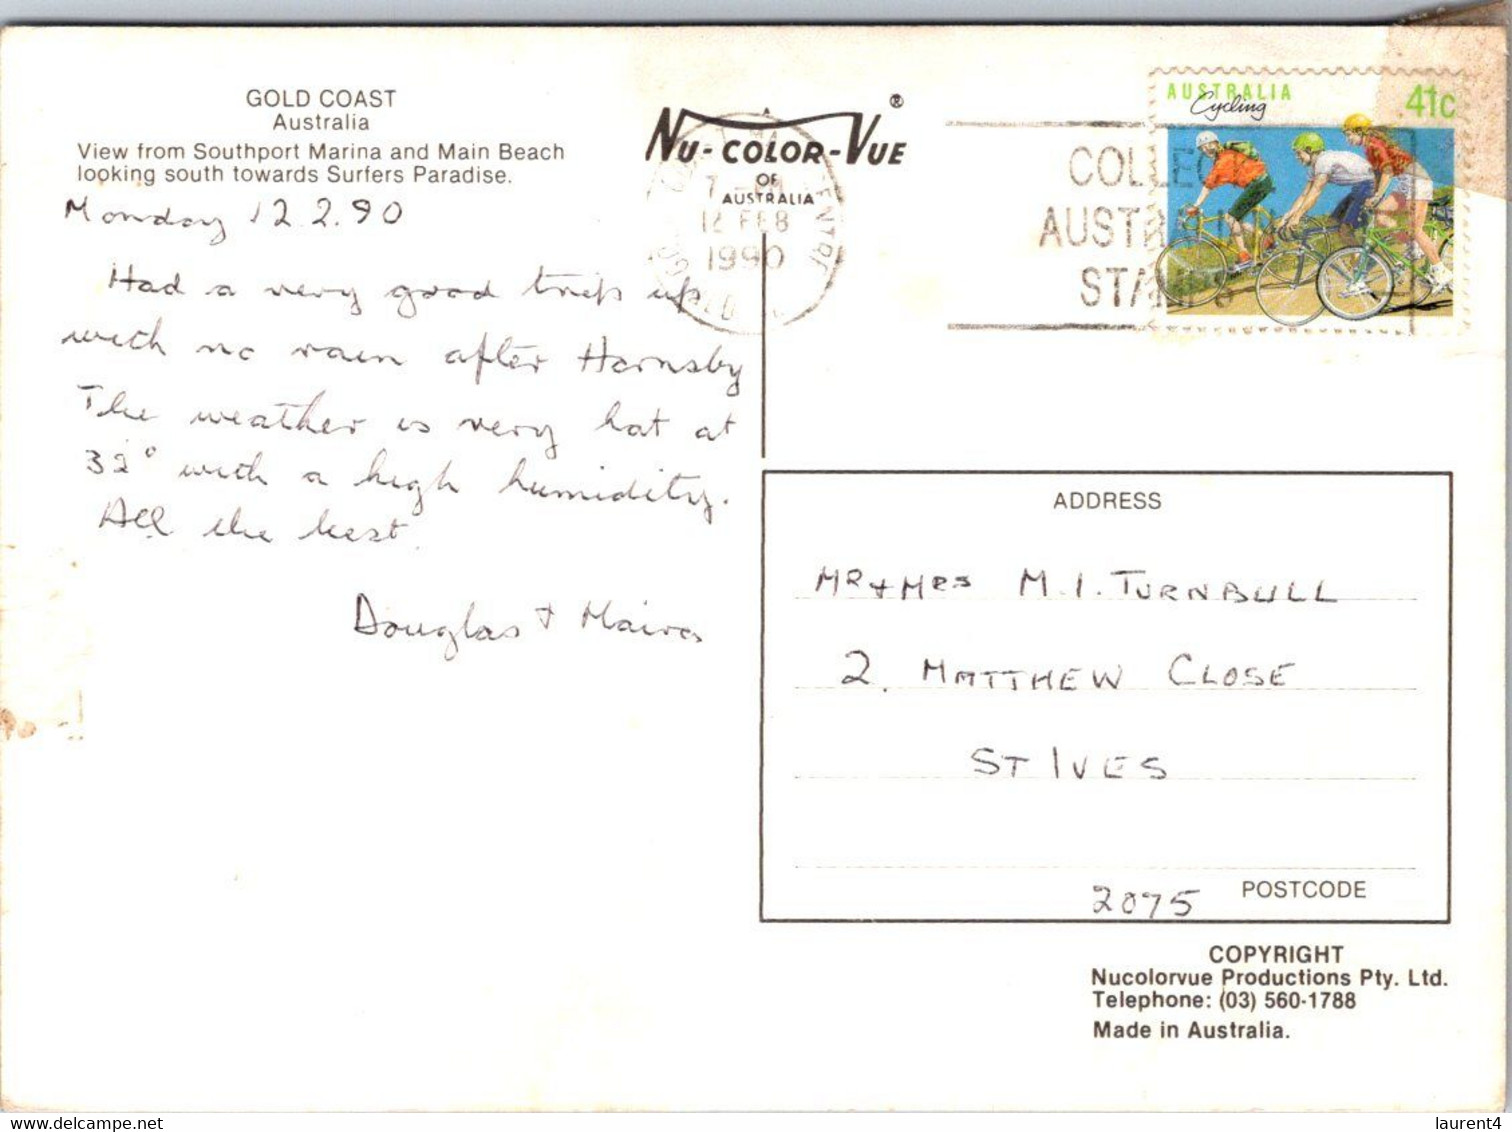 GOLD COAST
Australia
View from Southport Marina and Main Beach
looking south towards Surfers Paradise.
Monday 12.2.90
Had a very good trip up
with no rain after Hornsby
The weather is very hot at
32° with a high humidity.
All the best.
Douglas + Maira
NU-COLOR-VUE ®
OF
AUSTRALIA
12 FEB
1990
COLLECT
AUSTRALIAN
STAMPS
AUSTRALIA
Cycling
41c
ADDRESS
MR + MRS M.I. TURNBULL
2. MATTHEW CLOSE
ST IVES
2075 POSTCODE
COPYRIGHT
Nucolorvue Productions Pty. Ltd.
Telephone: (03) 560-1788
Made in Australia.
laurent4